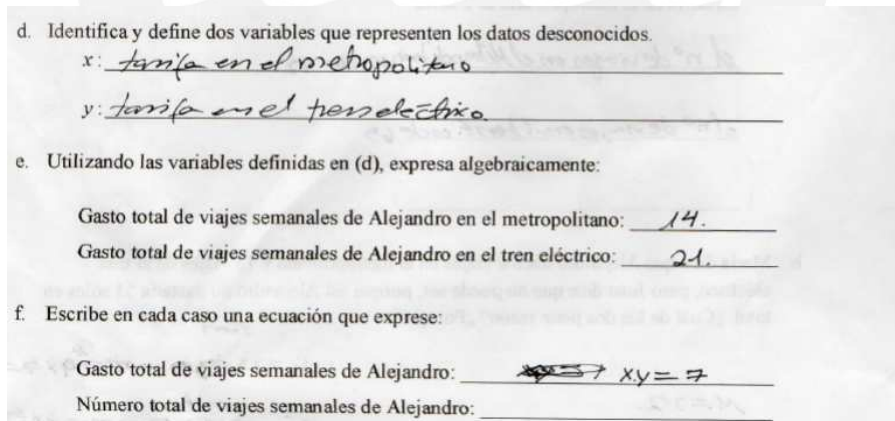 d. Identifica y define dos variables que representen los datos desconocidos.
x: tarifa en el metropolitano
y: tarifa en el tren eléctrico.
e. Utilizando las variables definidas en (d), expresa algebraicamente:
Gasto total de viajes semanales de Alejandro en el metropolitano: 14.
Gasto total de viajes semanales de Alejandro en el tren eléctrico: 21.
f. Escribe en cada caso una ecuación que exprese:
Gasto total de viajes semanales de Alejandro: x.y = 7
Número total de viajes semanales de Alejandro: